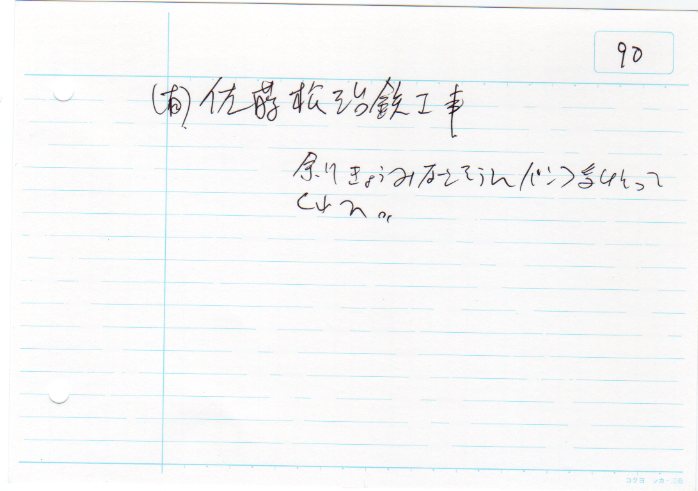 90
(有)佐藤松治鉄工事
余りきょうみなさそうに パンフ受けとって
くれた。
コクヨ シカ-